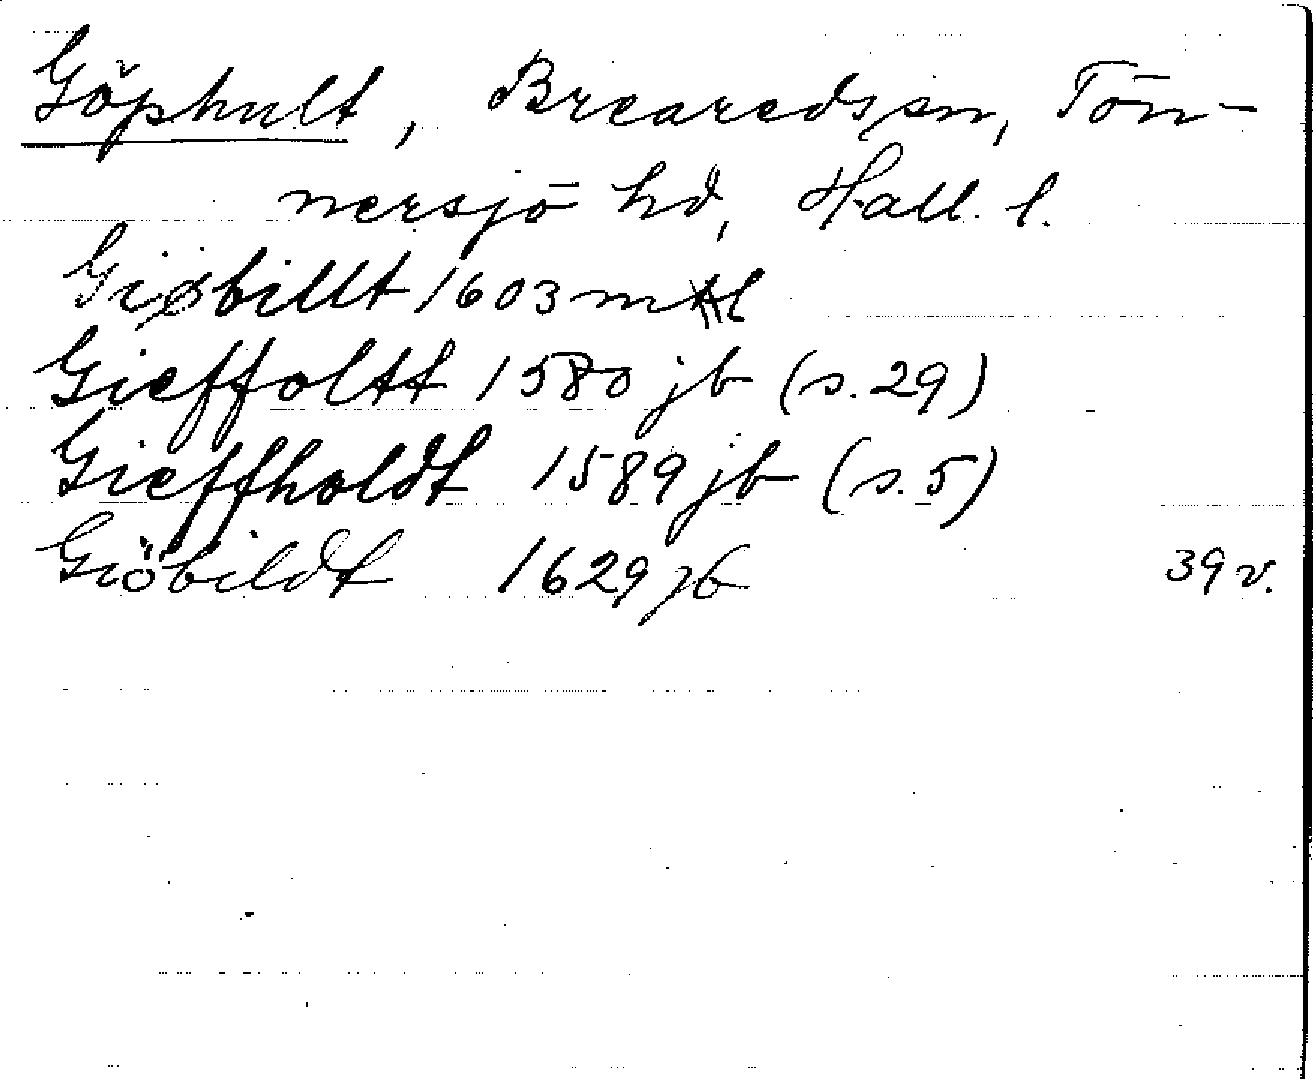 Göphult, Breareds sn, Tön-
nersjö hd, Hall. l.
Giøbillt 1603 mtl
Gieffoltt 1580 jb (s. 29)
Gieffholdt 1589 jb (s. 5)
Giöbildt 1629 jb 39 v.